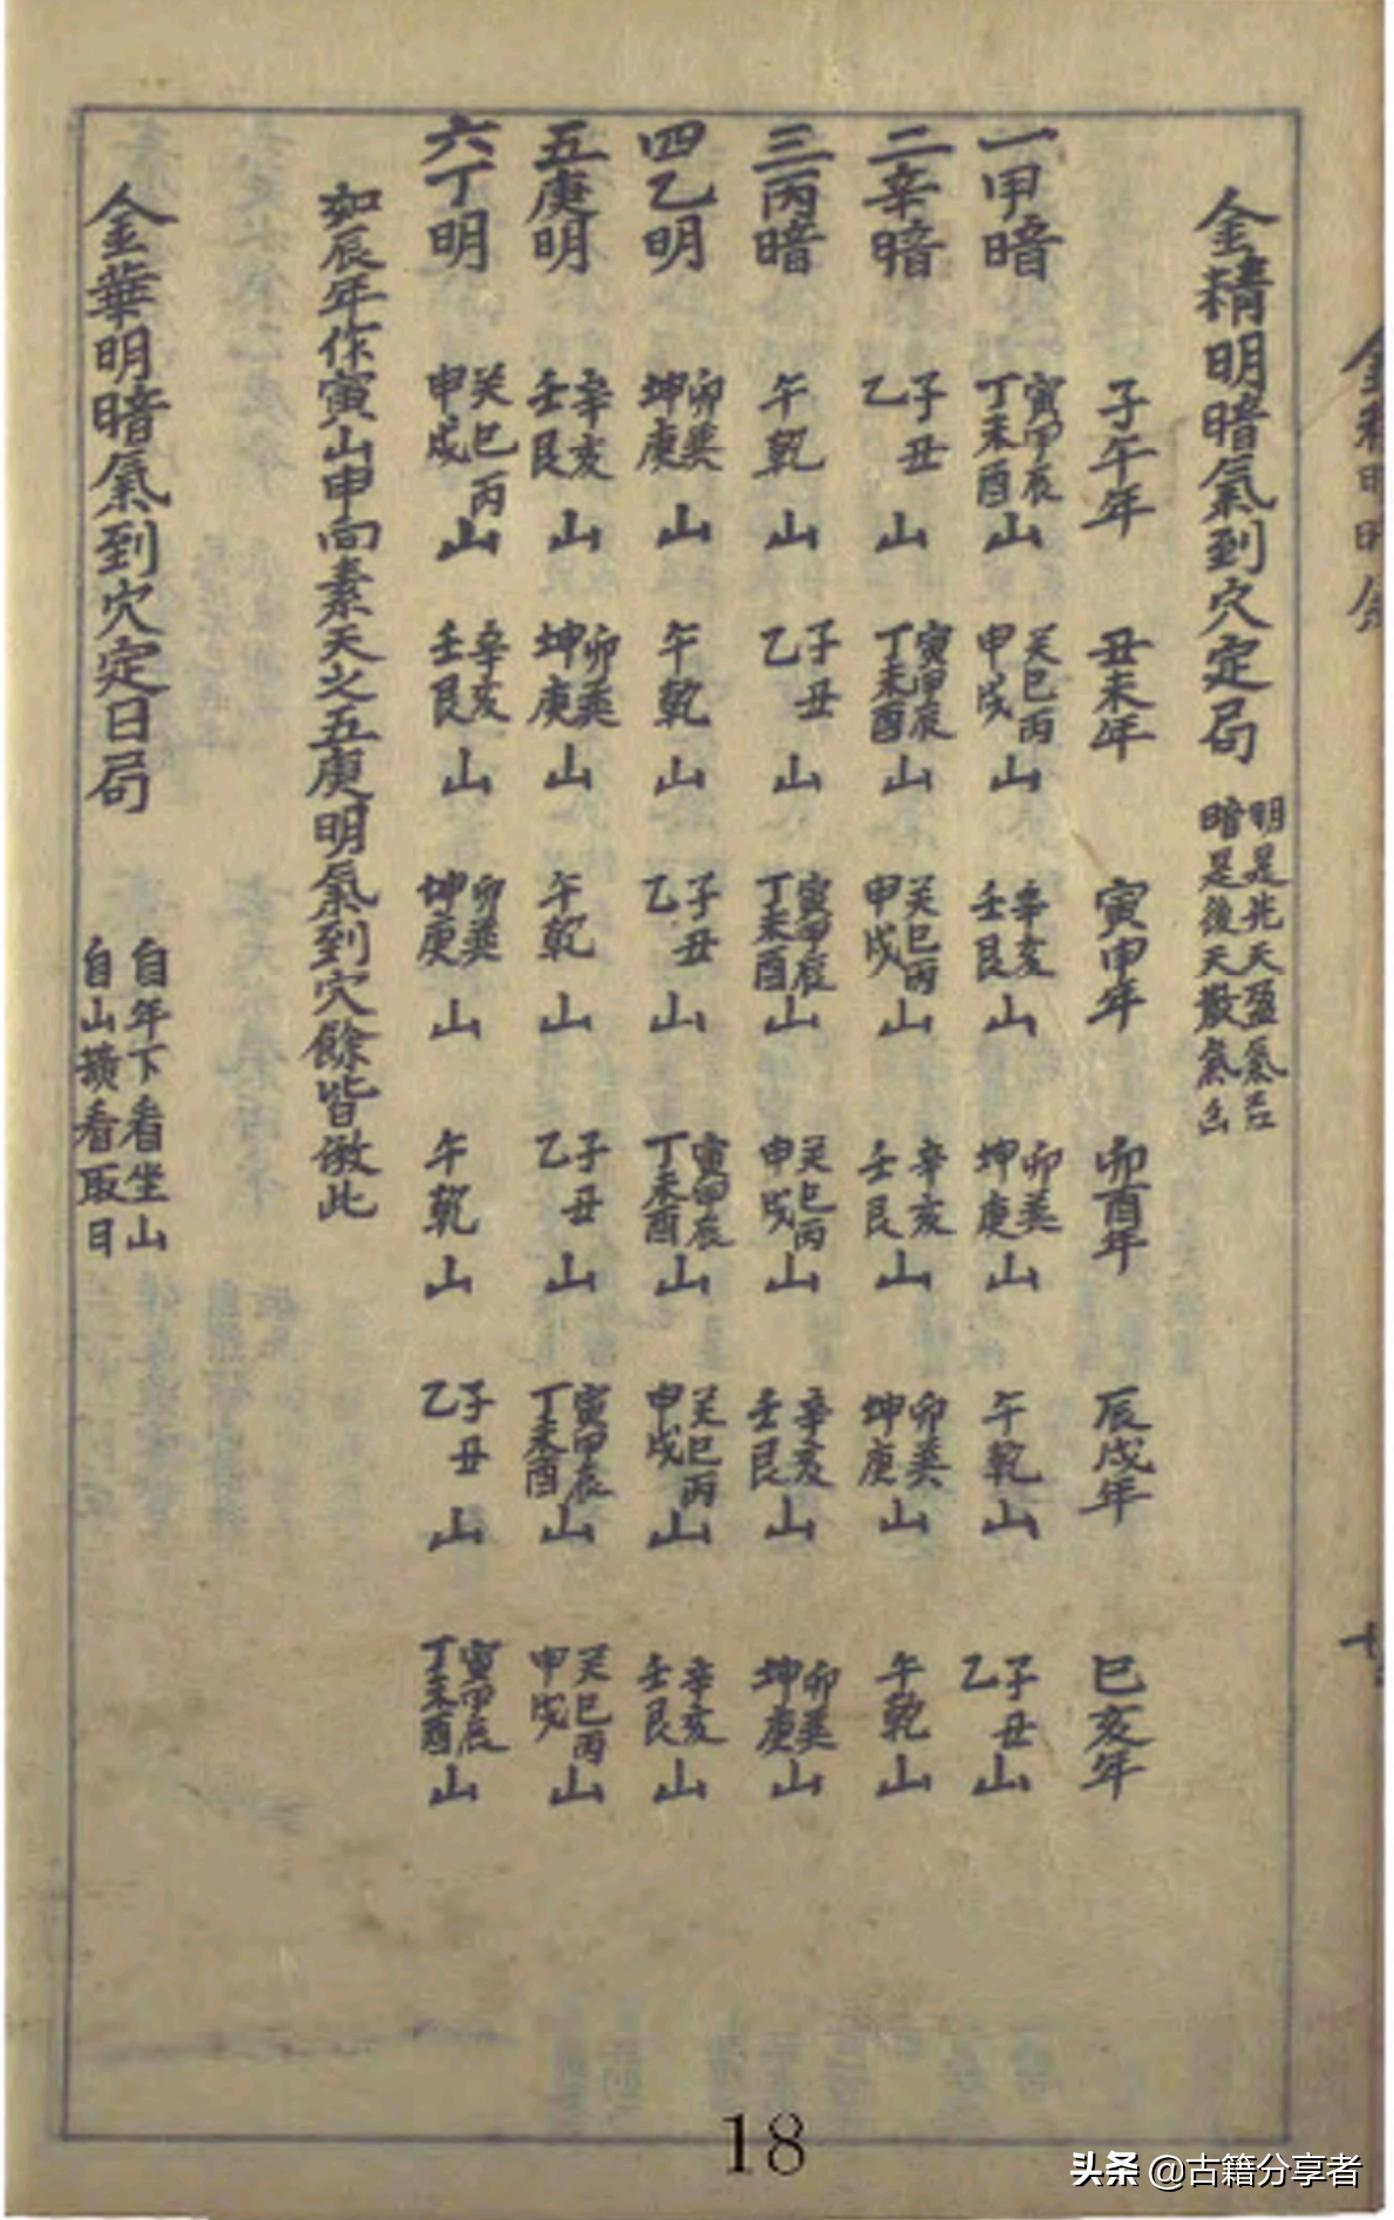 金精明暗氣到穴定局
明是先天盈氣吉
暗是後天散氣凶
子午年 丑未年 寅申年 卯酉年 辰戌年 巳亥年
一甲暗 寅甲辰丁未酉山 癸巳丙申戌山 辛亥壬艮山 卯巽坤庚山 午乾山 子丑乙山
二辛暗 子丑乙山 寅甲辰丁未酉山 癸巳丙申戌山 辛亥壬艮山 卯巽坤庚山 午乾山
三丙暗 午乾山 子丑乙山 寅甲辰丁未酉山 癸巳丙申戌山 辛亥壬艮山 卯巽坤庚山
四乙明 卯巽坤庚山 午乾山 子丑乙山 寅甲辰丁未酉山 癸巳丙申戌山 辛亥壬艮山
五庚明 辛亥壬艮山 卯巽坤庚山 午乾山 子丑乙山 寅甲辰丁未酉山 癸巳丙申戌山
六丁明 癸巳丙申戌山 辛亥壬艮山 卯巽坤庚山 午乾山 子丑乙山 寅甲辰丁未酉山
如辰年作寅山申向素天之五庚明氣到穴餘皆倣此
金華明暗氣到穴定日局
自年下看坐山
自山横看取日
18
头条 @古籍分享者